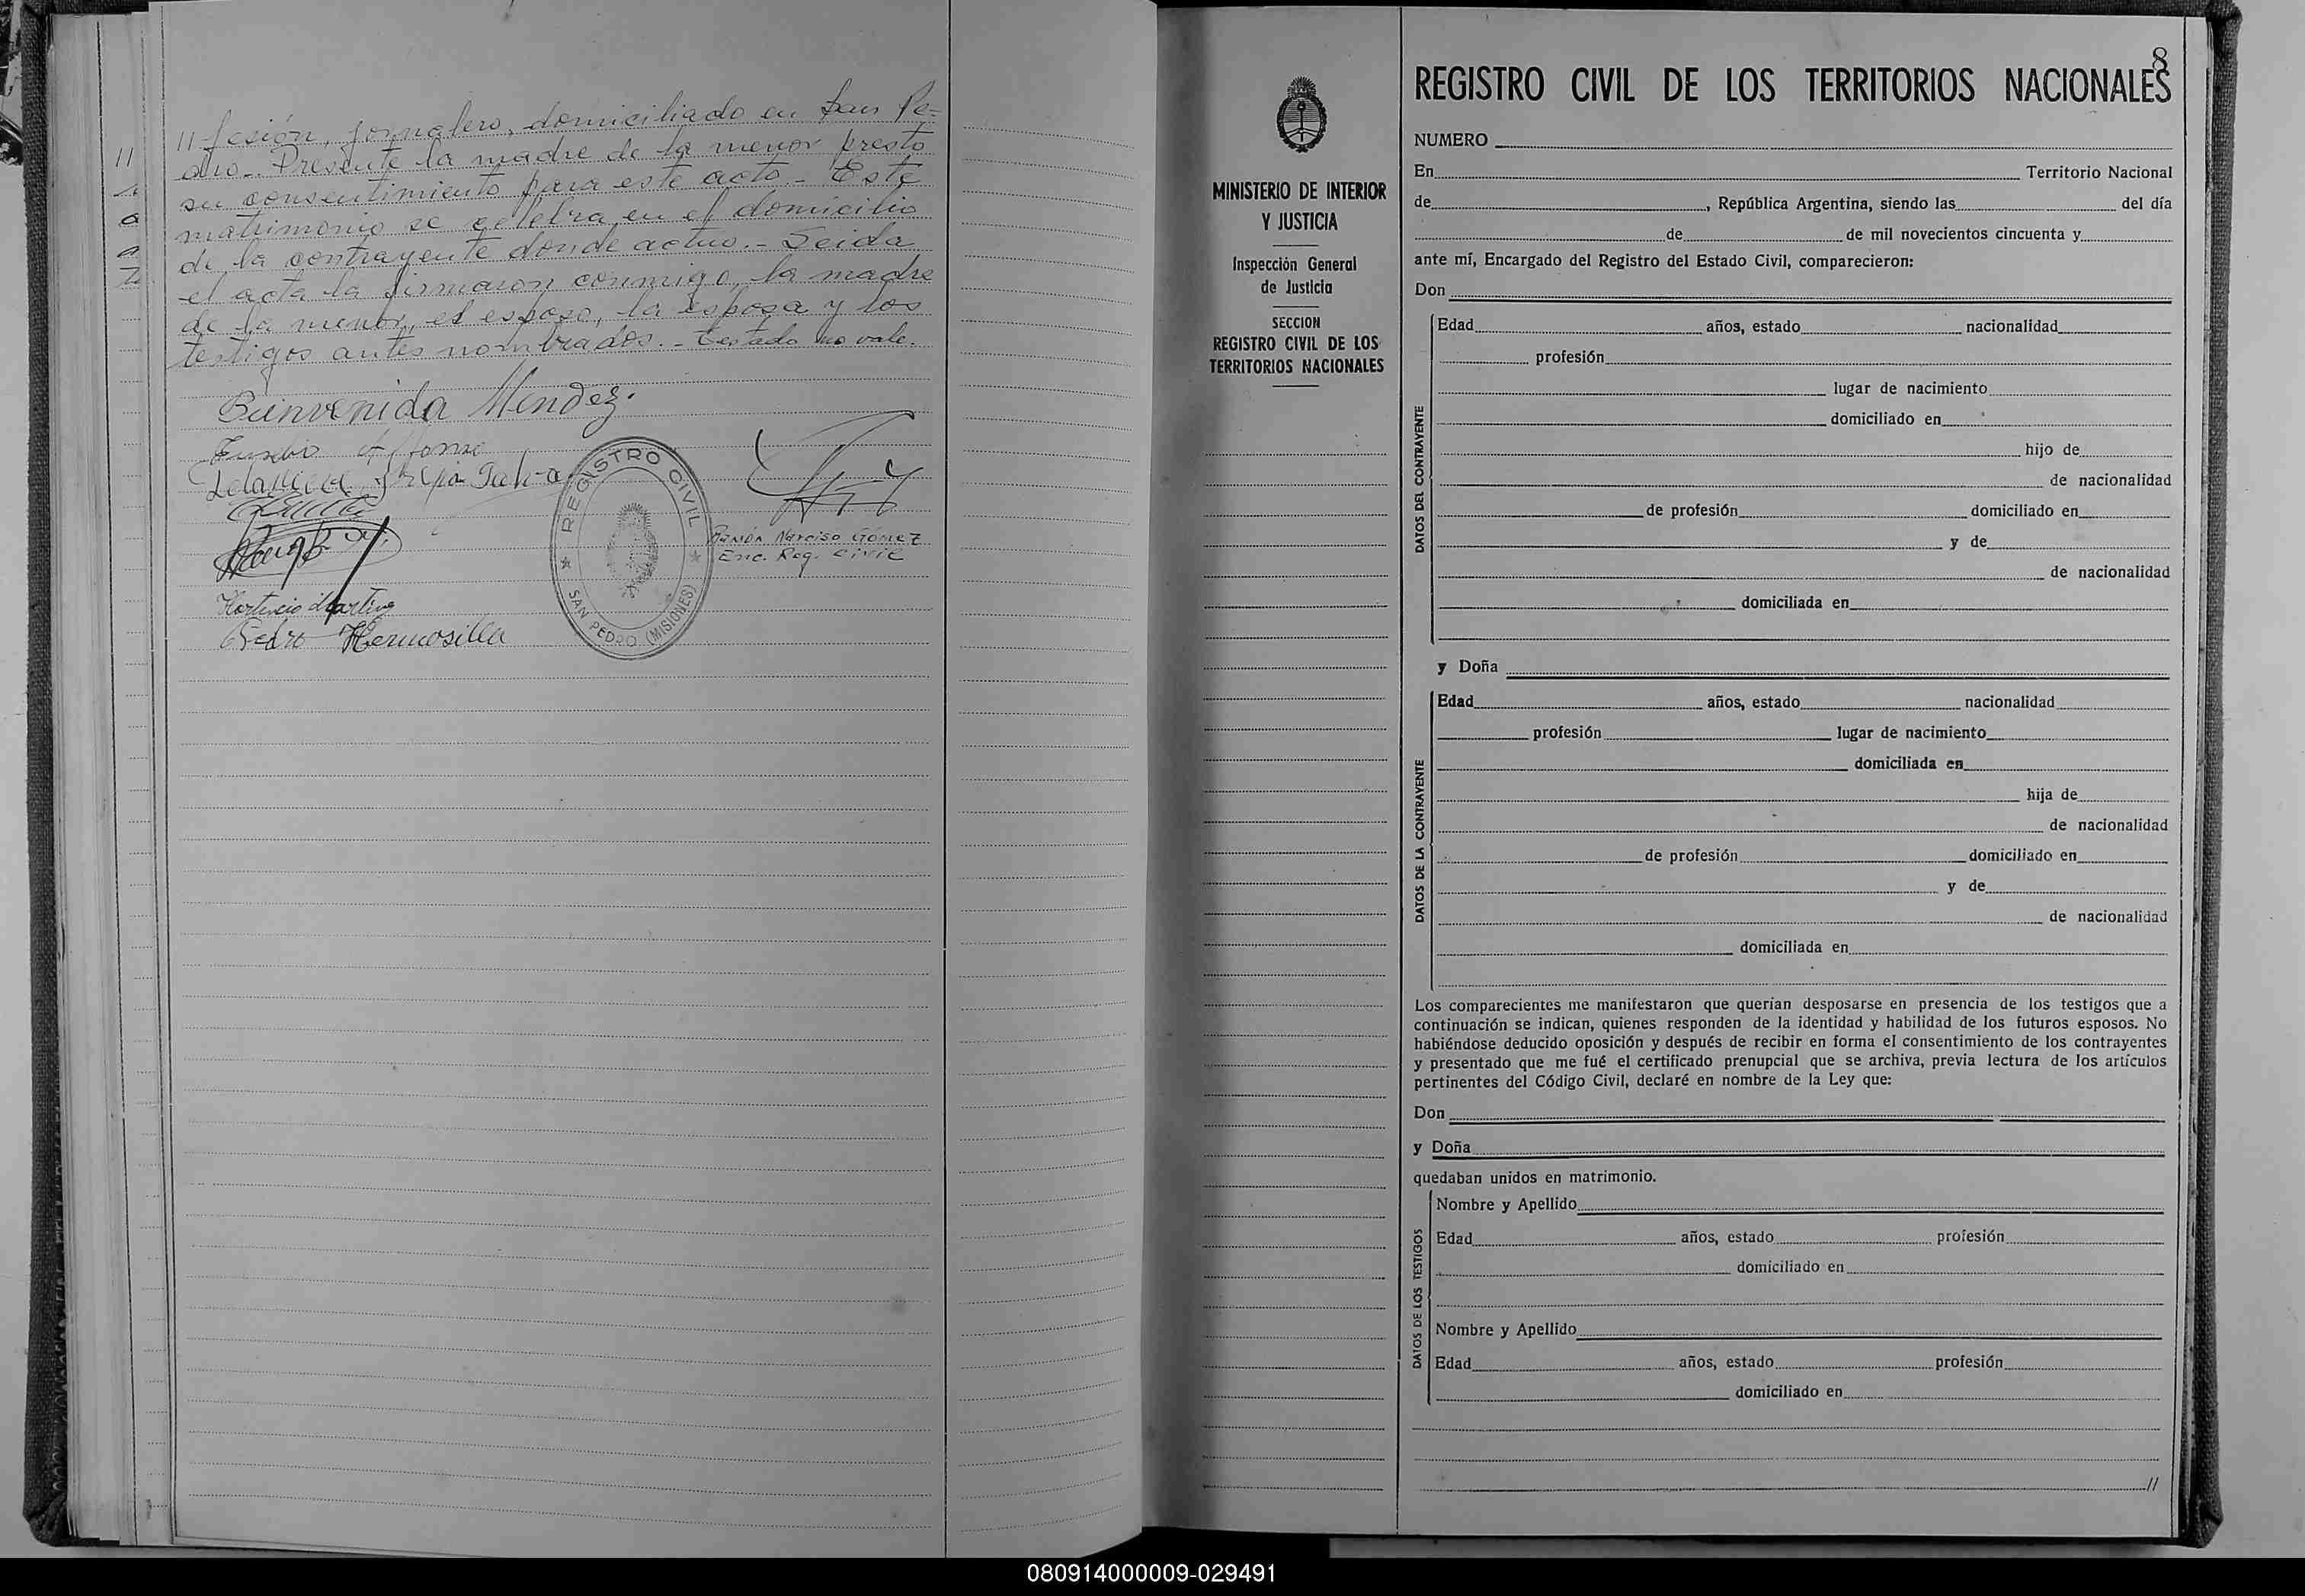 // fesión, jornalero, domiciliado en San Pe=
dro.- Presente la madre de la menor prestó
su consentimiento para este acto.- Este
matrimonio se celebra en el domicilio
de la contrayente donde actuo.- Leida
el acta la firmaron conmigo, la madre
de la menor, el esposo, la esposa y los
testigos antes nombrados.- Testado no vale.
Bienvenida Mendez.
Eusebio
REGISTRO CIVIL
SAN PEDRO (MISIONES)
Ramón Narciso Gómez
Enc. Reg. Civil
Hortencio Martins
Pedro Hermosilla
MINISTERIO DE INTERIOR
Y JUSTICIA
Inspección General
de Justicia
SECCION
REGISTRO CIVIL DE LOS
TERRITORIOS NACIONALES
8
REGISTRO CIVIL DE LOS TERRITORIOS NACIONALES
NUMERO
En Territorio Nacional
de , República Argentina, siendo las del día
de de mil novecientos cincuenta y
ante mí, Encargado del Registro del Estado Civil, comparecieron:
Don
DATOS DEL CONTRAYENTE
Edad años, estado nacionalidad
profesión
lugar de nacimiento
domiciliado en
hijo de
de nacionalidad
de profesión domiciliado en
y de
de nacionalidad
domiciliada en
y Doña
DATOS DE LA CONTRAYENTE
Edad años, estado nacionalidad
profesión lugar de nacimiento
domiciliada en
hija de
de nacionalidad
de profesión domiciliado en
y de
de nacionalidad
domiciliada en
Los comparecientes me manifestaron que querían desposarse en presencia de los testigos que a
continuación se indican, quienes responden de la identidad y habilidad de los futuros esposos. No
habiéndose deducido oposición y después de recibir en forma el consentimiento de los contrayentes
y presentado que me fué el certificado prenupcial que se archiva, previa lectura de los artículos
pertinentes del Código Civil, declaré en nombre de la Ley que:
Don
y Doña
quedaban unidos en matrimonio.
DATOS DE LOS TESTIGOS
Nombre y Apellido
Edad años, estado profesión
domiciliado en
Nombre y Apellido
Edad años, estado profesión
domiciliado en
//
080914000009-029491